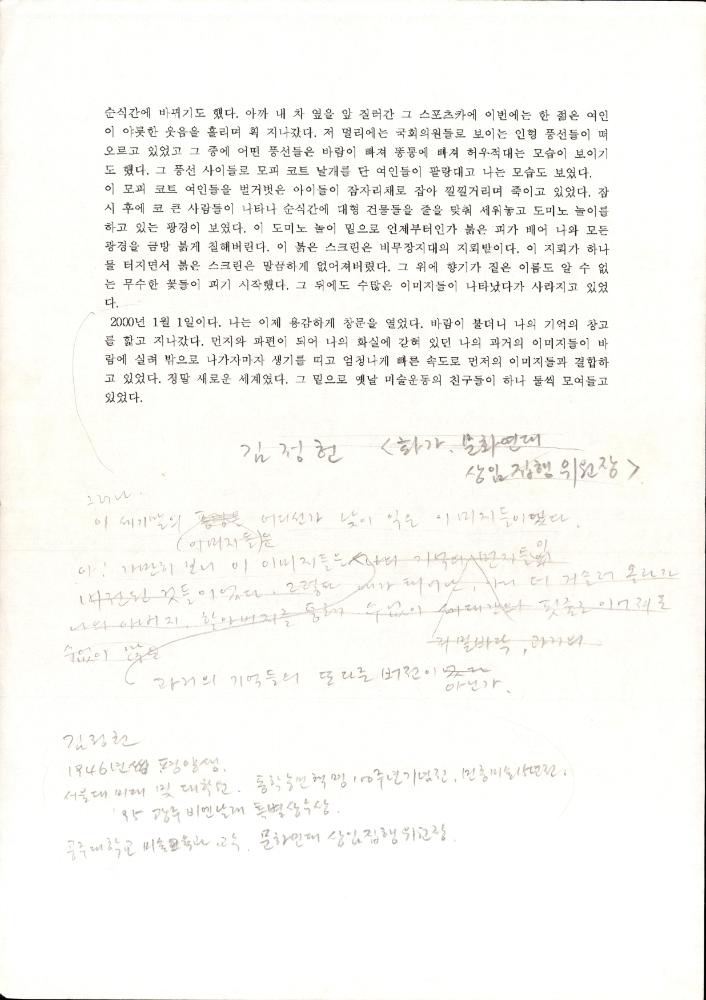 순식간에 바뀌기도 했다. 아까 내 차 옆을 앞 질러간 그 스포츠카에 이번에는 한 젊은 여인
이 야릇한 웃음을 흘리며 획 지나갔다. 저 멀리에는 국회의원들로 보이는 인형 풍선들이 떠
오르고 있었고 그 중에 어떤 풍선들은 바람이 빠져 똥통에 빠져 허우적대는 모습이 보이기
도 했다. 그 풍선 사이들로 모피 코트 날개를 단 여인들이 팔랑대고 나는 모습도 보였다.
이 모피 코트 여인들을 벌거벗은 아이들이 잠자리채로 잡아 낄낄거리며 죽이고 있었다. 잠
시 후에 코 큰 사람들이 나타나 순식간에 대형 건물들을 줄을 맞춰 세워놓고 도미노 놀이를
하고 있는 광경이 보였다. 이 도미노 놀이 밑으로 언제부터인가 붉은 피가 배어 나와 모든
광경을 금방 붉게 칠해버린다. 이 붉은 스크린은 비무장지대의 지뢰밭이다. 이 지뢰가 하나
둘 터지면서 붉은 스크린은 말끔하게 없어져버렸다. 그 위에 향기가 짙은 이름도 알 수 없
는 무수한 꽃들이 피기 시작했다. 그 뒤에도 수많은 이미지들이 나타났다가 사라지고 있었
다.
2000년 1월 1일이다. 나는 이제 용감하게 창문을 열었다. 바람이 불더니 나의 기억의 창고
를 핥고 지나갔다. 먼지와 파편이 되어 나의 화실에 갇혀 있던 나의 과거의 이미지들이 바
람에 실려 밖으로 나가자마자 생기를 띠고 엄청나게 빠른 속도로 먼저의 이미지들과 결합하
고 있었다. 정말 새로운 세계였다. 그 밑으로 옛날 미술운동의 친구들이 하나 둘씩 모여들고
있었다.
김정헌 <화가, 문화연대
상임집행위원장>
그러나.
이 세기말의 어디선가 낯이 익은 이미지들이었다.
이미지들은
아! 가만히 보니 이 이미지들은 나의 기억의 먼지들이
변전된 것들이었다. 그렇다 내가 태어난, 아니 더 거슬러 올라가
나의 아버지, 할아버지를 통해 수없이 핏줄로 이어져온
수없이 많은
과거의 기억들의 또다른 버전이
아닌가.
김정헌
1946년 평양생.
서울대 미대 및 대학원. 동학농민혁명 100주년기념전, 민중미술15년전.
'95 광주비엔날레 특별상수상.
공주대학교 미술교육과 교수, 문화연대 상임집행위원장.